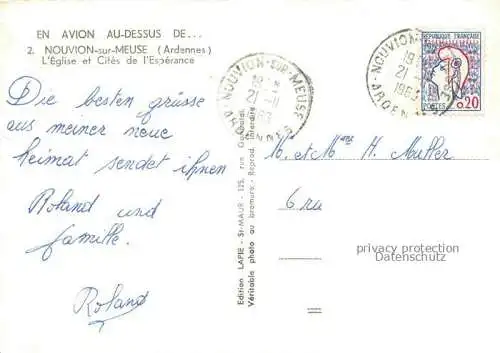 EN AVION AU-DESSUS DE...
2. NOUVION-sur-MEUSE (Ardennes)
L'Église et Cités de l'Espérance
Die besten grüsse
aus meiner neue
heimat sendet ihnen
Roland und
famille.
Roland
Edition LAPIE - St-MAUR - 125, rue
Véritable photo au bromure - Reprod. interdite
NOUVION-SUR-MEUSE
21-11
1963
ARDENNES
RÉPUBLIQUE FRANÇAISE
POSTES 0,20
NOUVION
21
1963
ARDEN
M. et Mme H. Muller
6 ru
privacy protection
Datenschutz